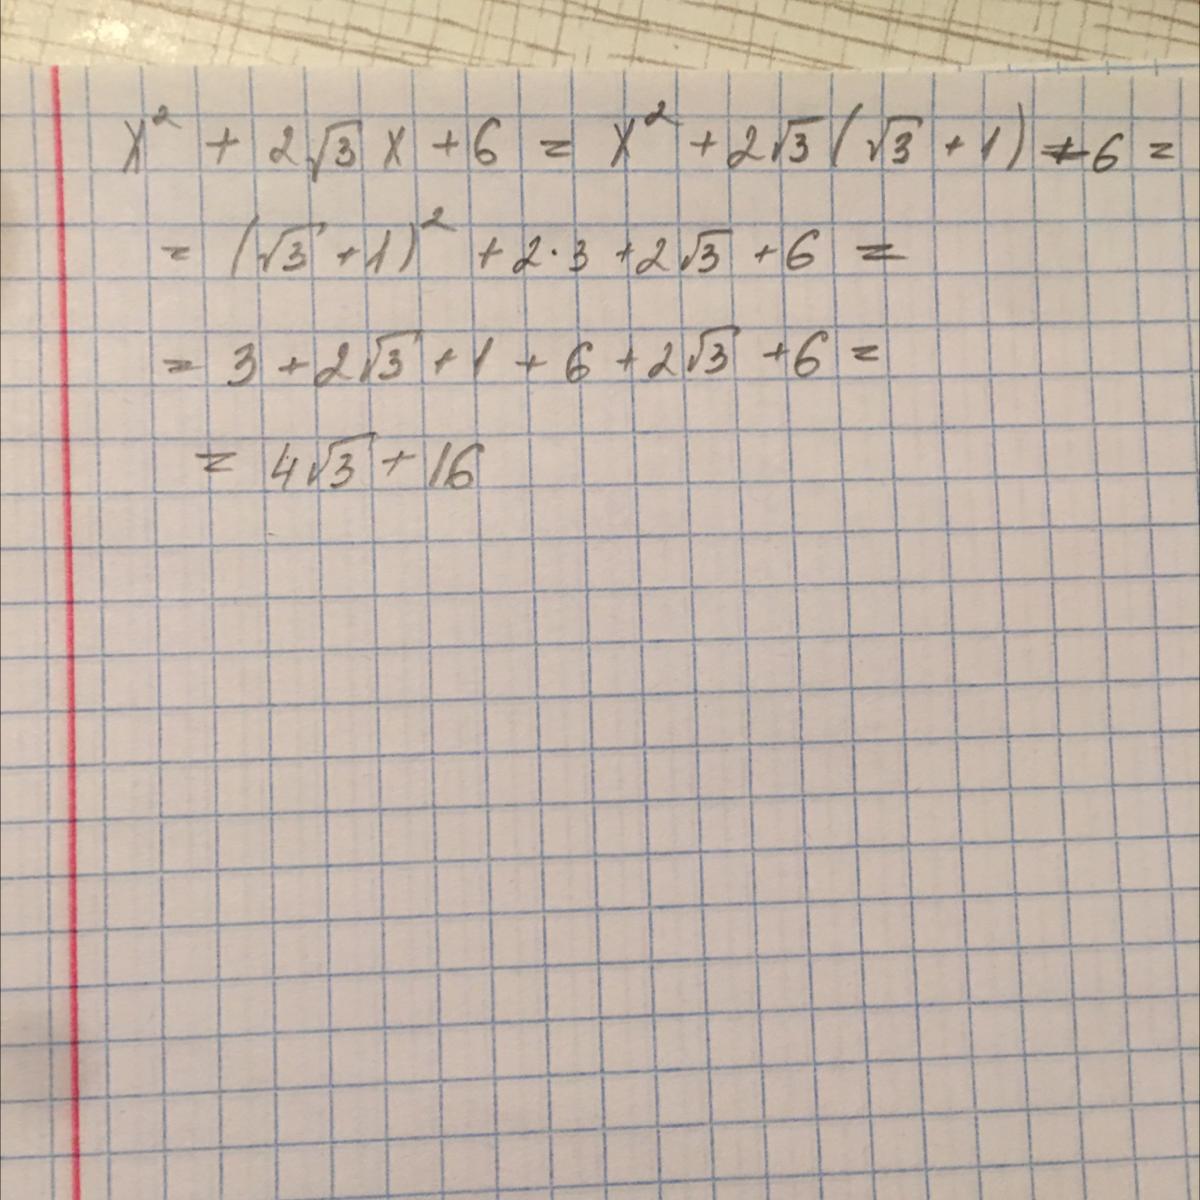 x² + 2√3 x + 6 = x² + 2√3 (√3 + 1) + 6 =
= (√3 + 1)² + 2·3 + 2√3 + 6 =
= 3 + 2√3 + 1 + 6 + 2√3 + 6 =
= 4√3 + 16